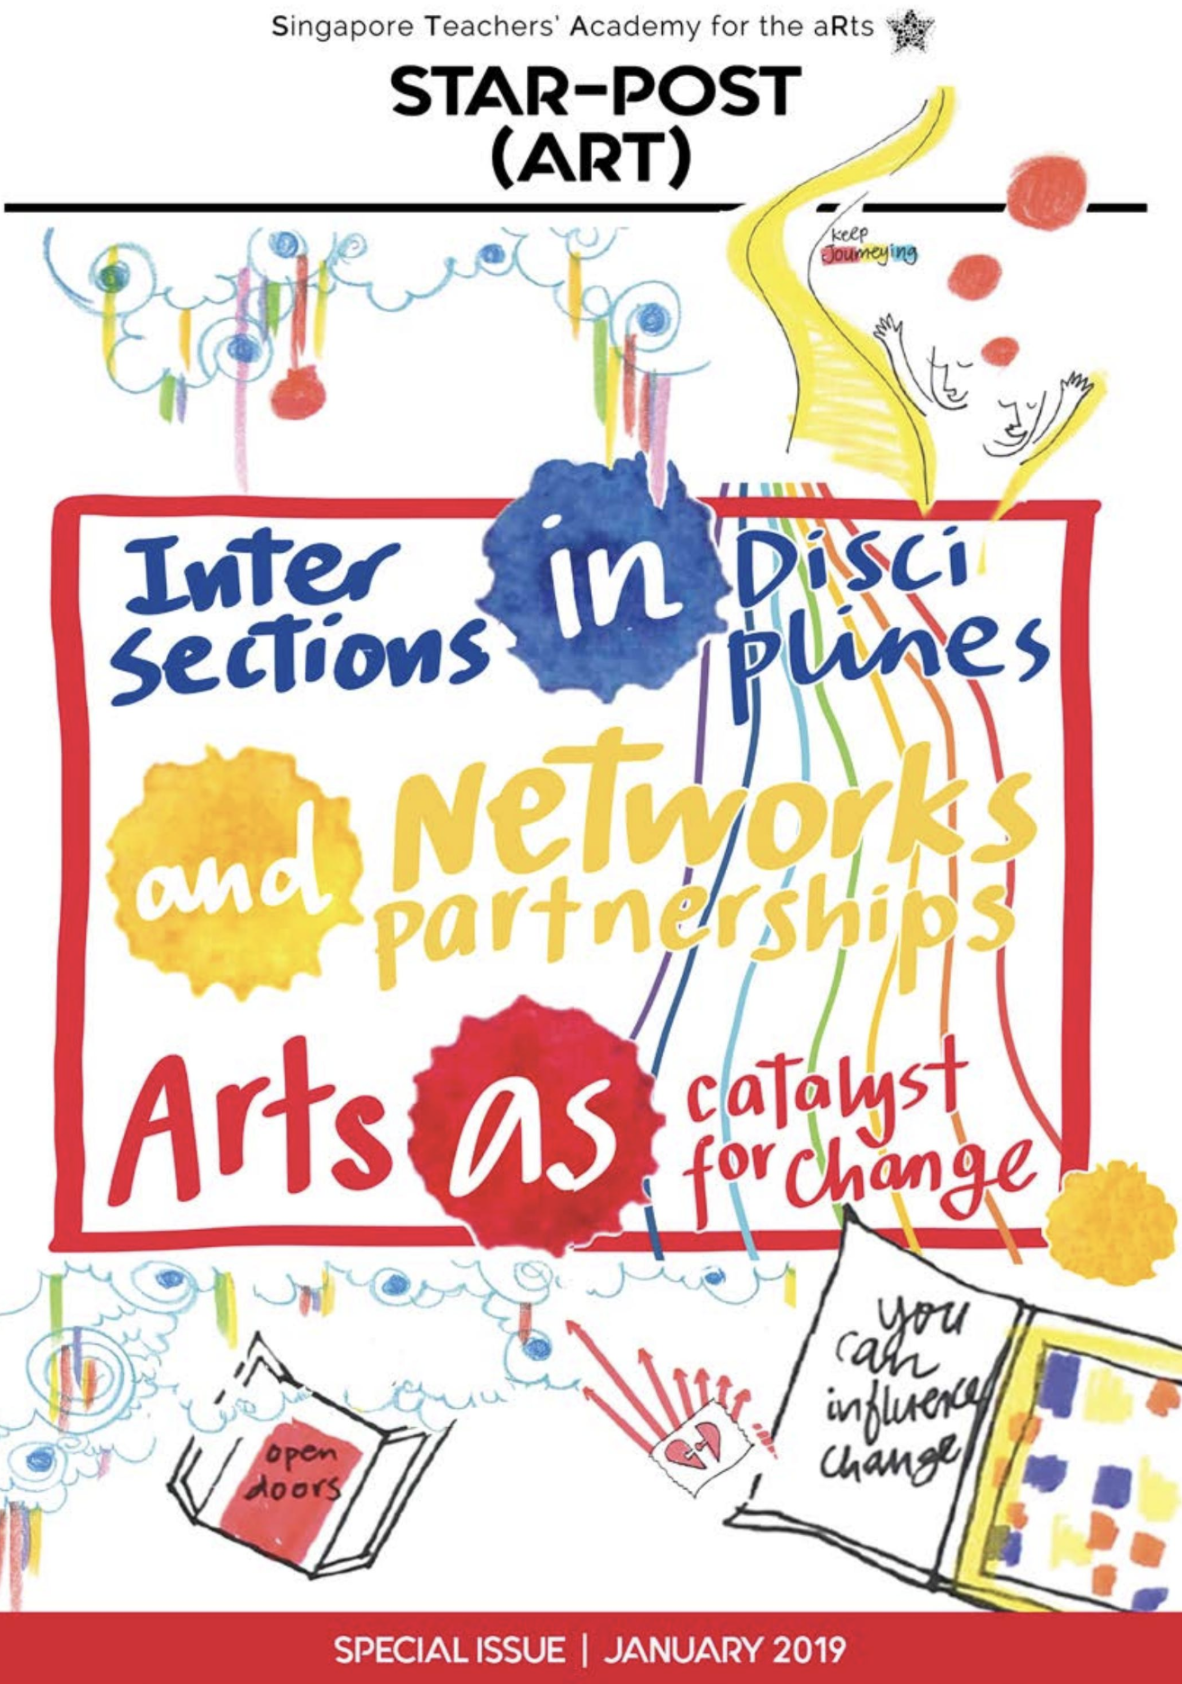 Singapore Teachers' Academy for the aRts
STAR-POST
(ART)
keep
Journeying
Inter
sections
in
Disci
plines
and
Networks
partnerships
Arts
as
catalyst
for change
you
can
influence
change
open
doors
SPECIAL ISSUE | JANUARY 2019